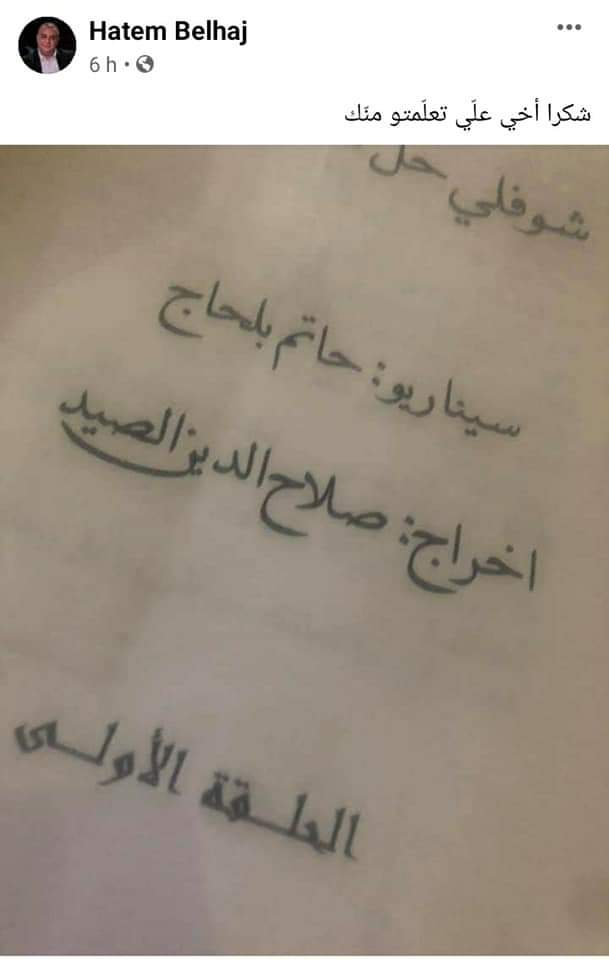 Hatem Belhaj
6 h
شكرا أخي علّي تعلّمتو منّك
شوفلي حل
سيناريو: حاتم بلحاج
اخراج: صلاح الدين الصيد
الحلقة الأولى